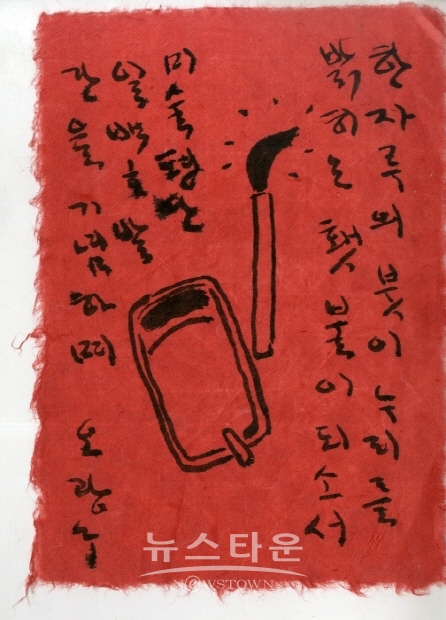 한자루의 붓이 누리를
밝히는 횃불이 되소서
미술평단
일백호 발
간을 기념하며 오광수
뉴스타운
NEWSTOWN